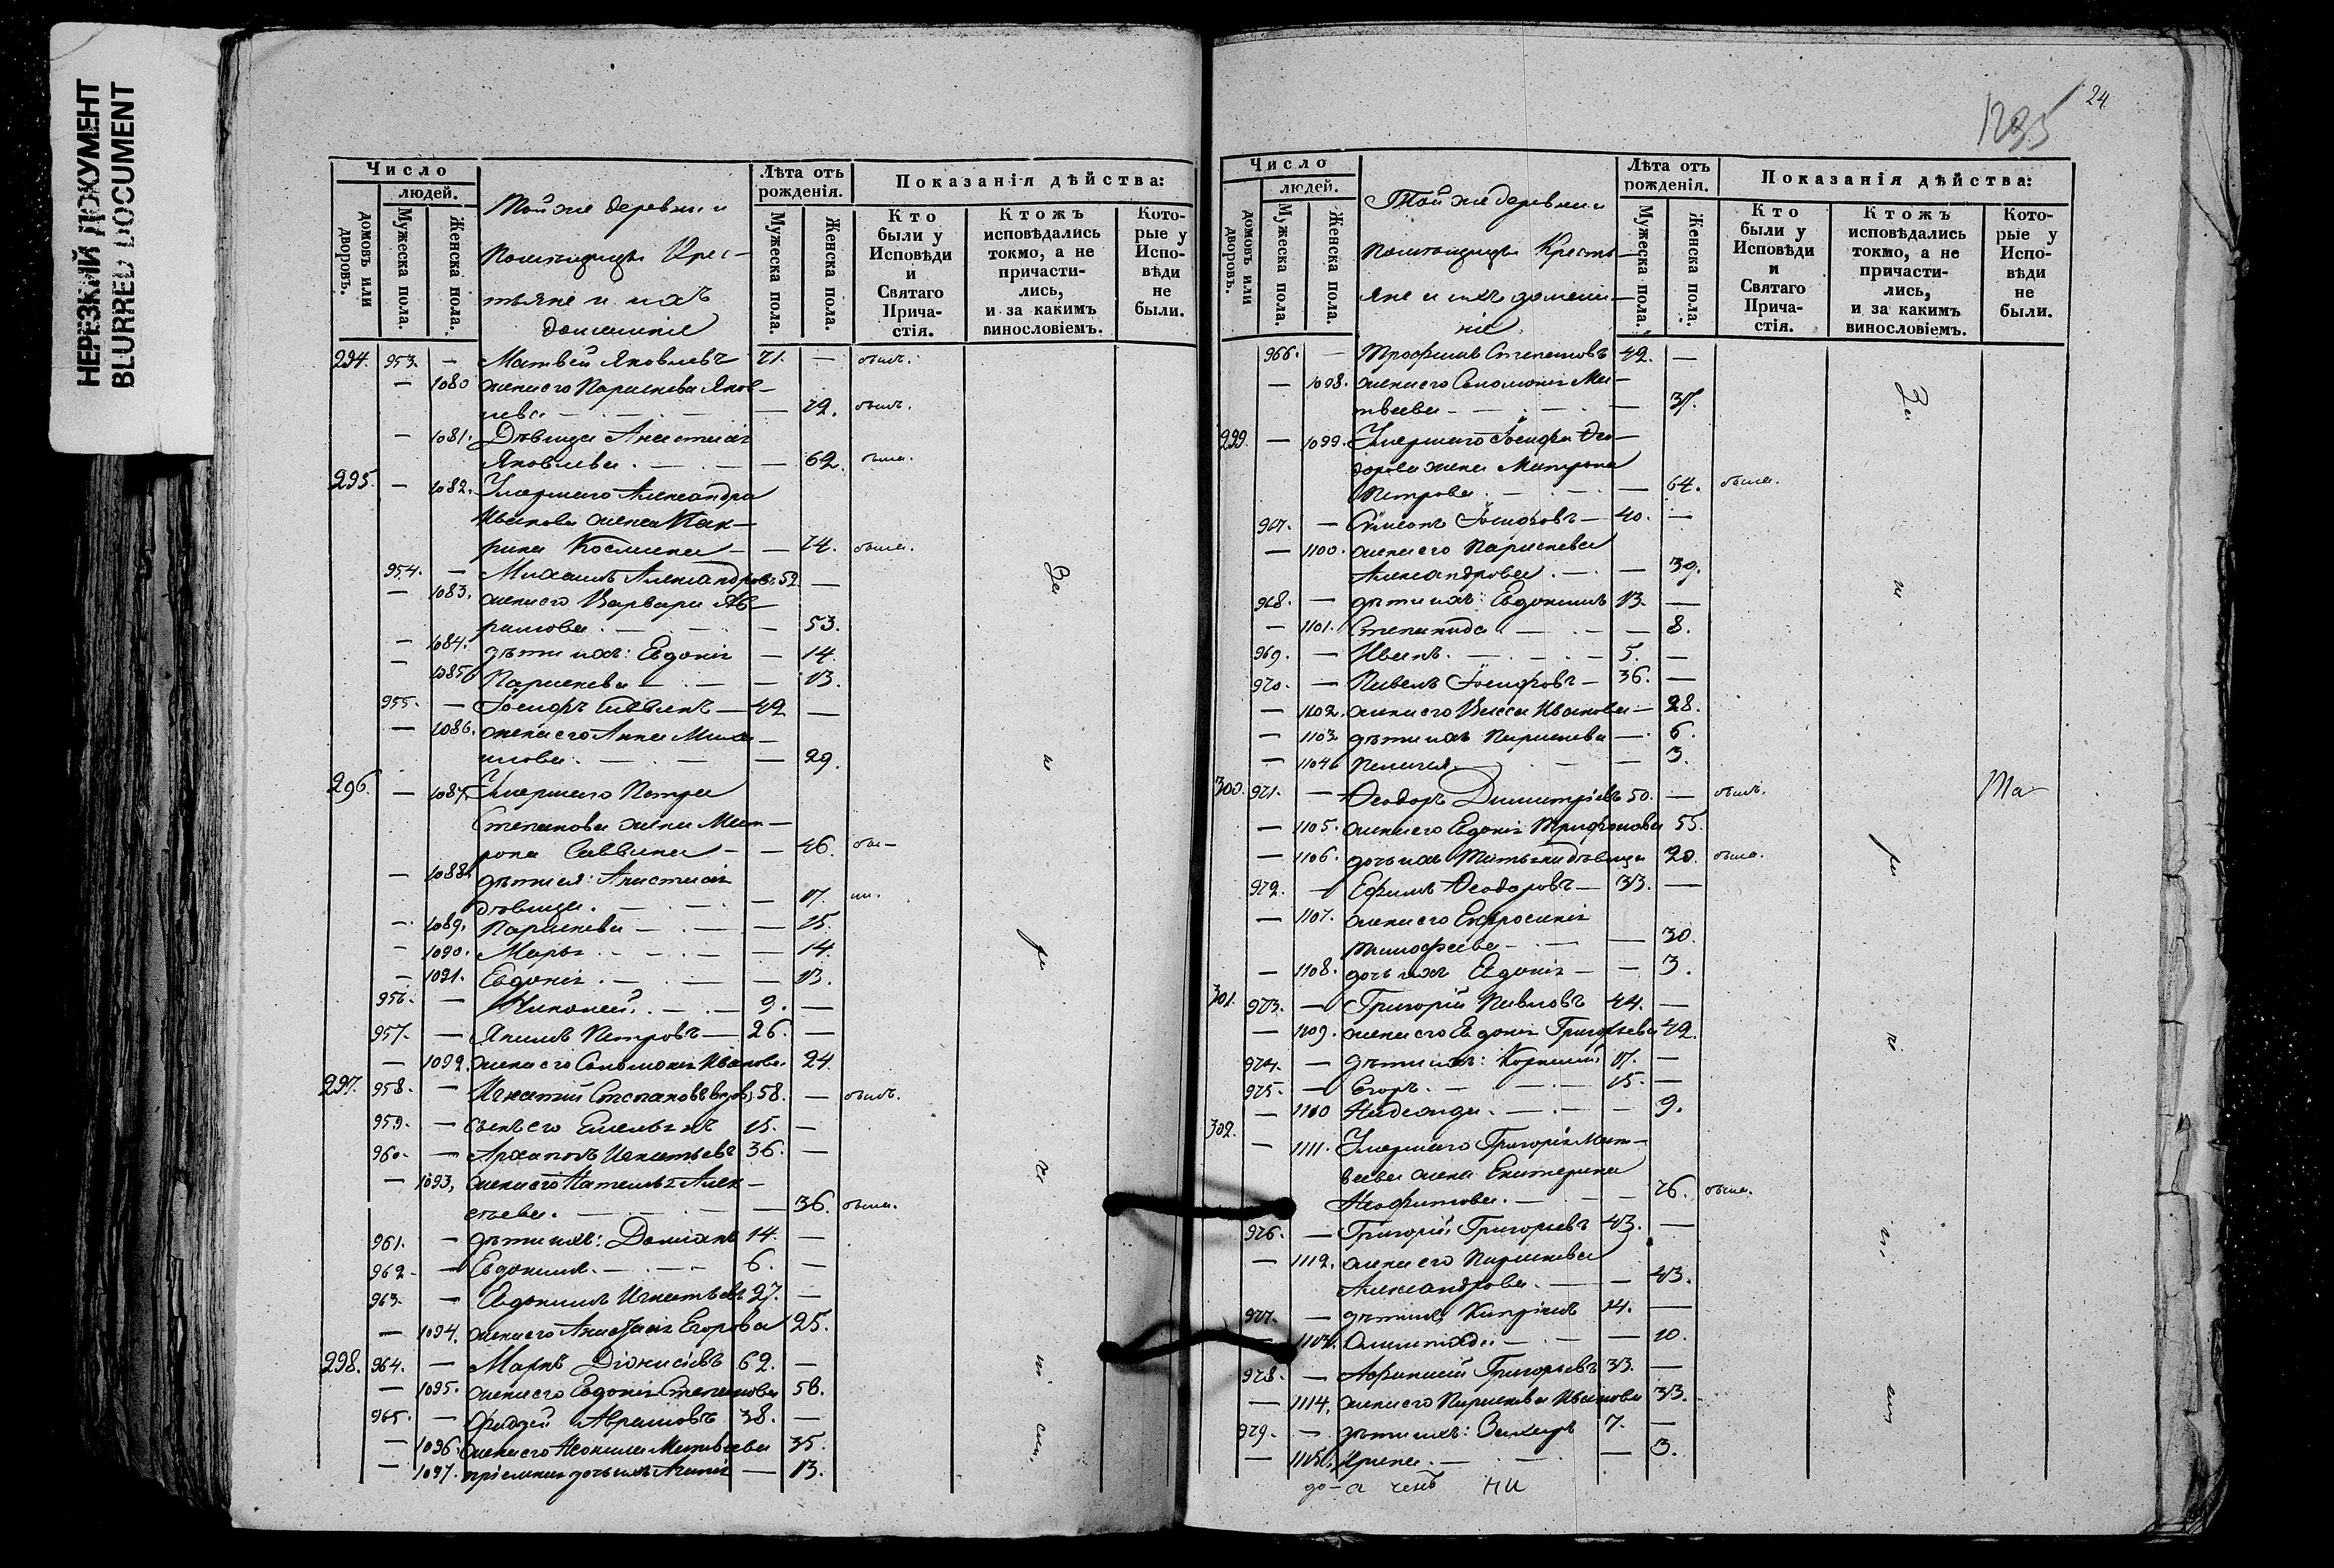 НЕРЕЗКИЙ ДОКУМЕНТ
BLURRED DOCUMENT
Число
людей.
домовъ или дворовъ.
Мужеска пола.
Женска пола.
Той же деревни
помѣщицы Крес-
тьяне и ихъ
домашніе
Лѣта отъ рожденія.
Мужеска пола.
Женска пола.
Показанія дѣйства:
Кто были у Исповѣди и Святаго Прича-стія.
Ктожъ исповѣдались токмо, а не причасти-лись, и за какимъ винословіемъ.
Кото-рые у Испо-вѣди не были.
294. 953. — Матвей Яковлевъ 71. — былъ.
— 1080 жена его Параскева Яков-
лева — 72.
— 1081. Дѣвица Анастасія
Яковлева. — 62. была.
295. — 1082. Умершаго Александра
Иванова жена
Космина — 74. была.
954. — Михаилъ Александровъ 52 —
— 1083. жена его Варвара Ав-
рамова. — 53.
— 1084. дѣти ихъ: Евдокія — 14.
— 1085 Параскева — 13.
955. — Іосифъ Саввинъ — 42 —
— 1086. жена его Анна Миха-
илова. — 29.
296. — 1087. Умершаго Петра
Степанова жена Мат-
рона Саввина — 46. бы-
— 1088 дѣти ея: Анастасія
дѣвица. — 17. ли.
— 1089. Параскева — 15.
— 1090. Марья — 14.
— 1091. Евдокія. — 13.
956. — Николай. — 9. —
957. — Якимъ Петровъ — 26. —
— 1092. жена его Соломонія Иванова 24.
297. 958. — Игнатій Степановъ вдов. 58. — былъ.
959. — сынъ его Емельянъ 15. —
960. — Архипъ Игнатьевъ 36. —
— 1093. жена его Наталья Алек-
сѣева. — 36. была.
961. — дѣти ихъ: Даміанъ 14. —
962. — Евдокимъ. — 6. —
963. — Евдокимъ Игнатьевъ 27. —
— 1094. жена его Анастасія Егорова 25.
298. 964. — Маркъ Діонисіевъ 62. —
— 1095. жена его Евдокія Степанова 58.
965. — Фаддей Аврамовъ 38. —
— 1096. жена его Матвѣева 35.
— 1097. пріемная дочь ихъ Агапія — 13.
За
1295
24
Число
людей.
домовъ или дворовъ.
Мужеска пола.
Женска пола.
Той же деревни
помѣщицы Кресть-
яне и ихъ домаш-
ніе.
Лѣта отъ рожденія.
Мужеска пола.
Женска пола.
Показанія дѣйства:
Кто были у Исповѣди и Святаго Прича-стія.
Ктожъ исповѣдались токмо, а не причасти-лись, и за какимъ винословіемъ.
Кото-рые у Испо-вѣди не были.
966. — Трофимъ Степановъ 42. —
— 1098. жена его Соломонія Ма-
твеева — 37.
299. — 1099. Умершаго Іосифа Ѳео-
дорова жена Матрона
Петрова. — 64. была.
967. — Симеонъ Іосифовъ — 40. —
— 1100. жена его Параскева
Александрова. — 39.
968. — дѣти ихъ: Евдокимъ 13. —
— 1101. Степанида — 8.
969. — Иванъ. — 5. —
970. — Павелъ Іосифовъ — 36. —
— 1102. жена его Васса Иванова — 28.
— 1103. дѣти ихъ Параскева — 6.
— 1104 Пелагея. — 3.
300. 971. — Ѳеодоръ Димитріевъ 50. — былъ.
— 1105. жена его Евдокія Трифонова 55.
— 1106. дочь ихъ Татьяна дѣвица 20. была.
972. — Ефимъ Ѳеодоровъ — 33. —
— 1107. жена его Евфросинія
Тимофеева — 30.
— 1108. дочь ихъ Евдокія — 3.
301. 973. — Григорій Павловъ 44. —
— 1109. жена его Евдокія Григорьева 42.
974. — дѣти ихъ: Корнилій 17. —
975. — Егоръ. — 15. —
— 1110 Надежда. — 9.
302. — 1111. Умершаго Григорія Мат-
веева жена Екатерина
Неофитова. — 76. была.
976. — Григорій Григорьевъ 43. —
— 1112. жена его Параскева
Александрова. — 43.
977. — дѣти ихъ Кипріанъ 14. —
— 1113. Олимпіада — 10.
978. — Афанасій Григорьевъ 33. —
— 1114. жена его Параскева Иванова 33.
979. — дѣти ихъ: Захаръ 7. —
— 1115. Ирина. — 3.
За
Ма